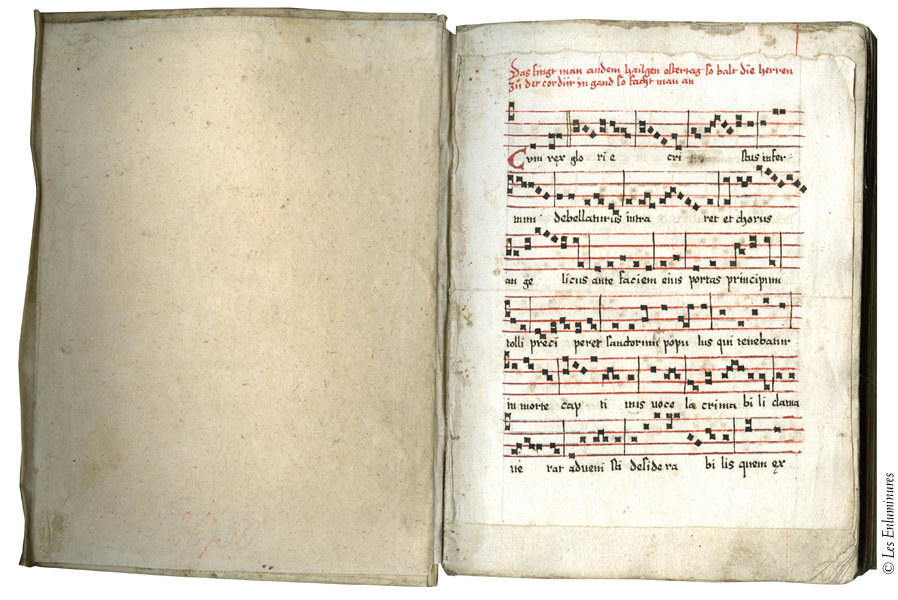 Das singt man an dem hailgen ostertag so balt die herren
zů der cordür in gand so facht man an
Cum rex glo ri e cri stus infer
num debellaturus intra ret et chorus
an ge licus ante faciem eius portas principum
tolli preci peret sanctorum popu lus qui tenebatur
in morte cap ti uus uoce la crima bi li clama
ue rat aduem sti deside ra bi lis quem ex
© Les Enluminures